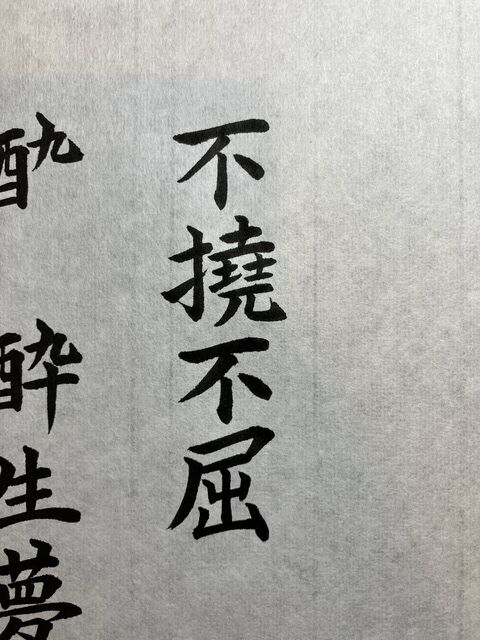 不撓不屈
酔生夢